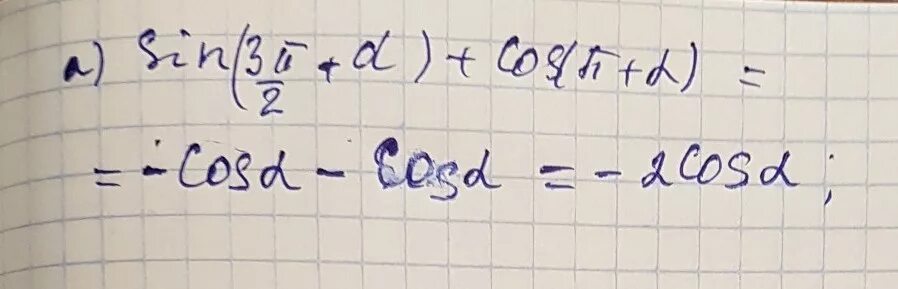 а) Sin(3π/2 + α) + Cos(π + α) =
= -Cosα - Cosα = -2Cosα;